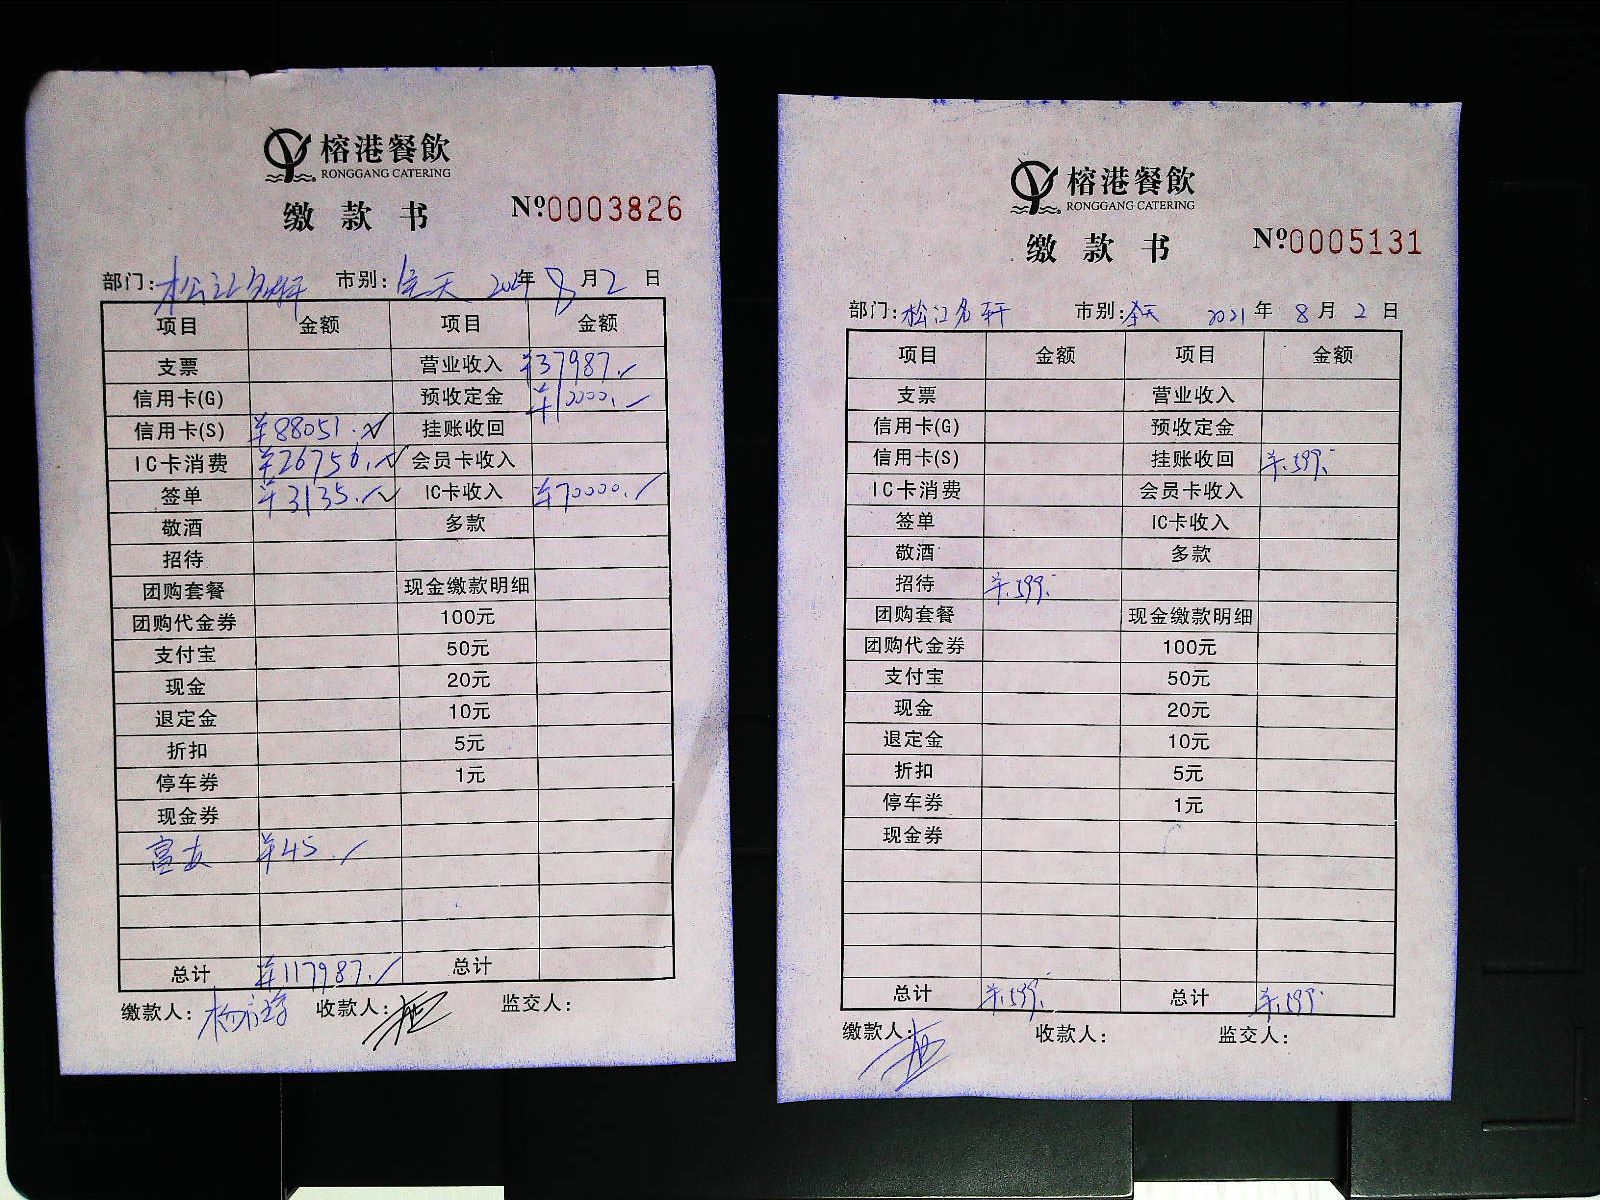 榕港餐飲
RONGGANG CATERING
缴款书 №0003826
部门：松江名轩 市别：全天 2021年8月2日
项目 金额 项目 金额
支票 营业收入 ¥37987.
信用卡(G) 预收定金 ¥10000.
信用卡(S) ¥88051. 挂账收回
IC卡消费 ¥26756. 会员卡收入
签单 ¥3135. IC卡收入 ¥70000.
敬酒 多款
招待
团购套餐 现金缴款明细
团购代金券 100元
支付宝 50元
现金 20元
退定金 10元
折扣 5元
停车券 1元
现金券
富友 ¥45.
总计 ¥117987. 总计
缴款人： 收款人： 监交人：
榕港餐飲
RONGGANG CATERING
缴款书 №0005131
部门：松江名轩 市别：全天 2021年8月2日
项目 金额 项目 金额
支票 营业收入
信用卡(G) 预收定金
信用卡(S) 挂账收回 ¥599.
IC卡消费 会员卡收入
签单 IC卡收入
敬酒 多款
招待 ¥599.
团购套餐 现金缴款明细
团购代金券 100元
支付宝 50元
现金 20元
退定金 10元
折扣 5元
停车券 1元
现金券
总计 ¥599. 总计 ¥599.
缴款人： 收款人： 监交人：